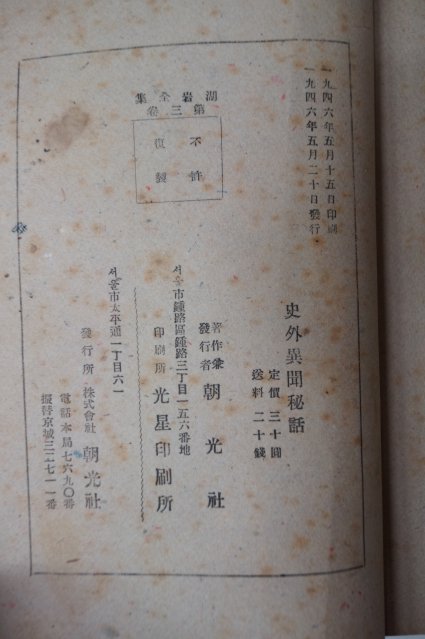 一九四六年五月十五日印刷
一九四六年五月二十日發行
史外異聞秘話
定價 三十圓
送料 二十錢
湖岩全集
第三卷
不許
復製
著作兼
發行者 朝光社
서울市鍾路區鍾路三丁目一五六番地
印刷所 光星印刷所
서울市太平通一丁目六一
發行所 株式會社 朝光社
電話本局七六九〇番
振替京城三二七一一番